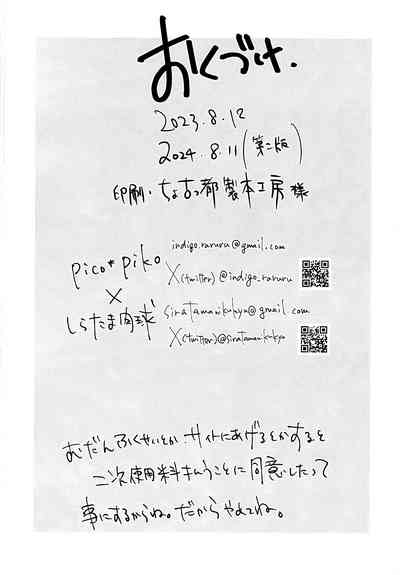 おくづけ.
2023.8.12
2024.8.11(第二版)
印刷・ちょ古っ都製本工房様
pico*piko
×
しらたま肉球
indigo.raruru@gmail.com
X(twitter)@indigo_raruru
siratamanikukyu@gmail.com
X(twitter)@siratamanikukyu
むだんふくせいとかサイトにあげるとかすると
二次使用料払うことに同意したって
事にするからね。だからやめてね。